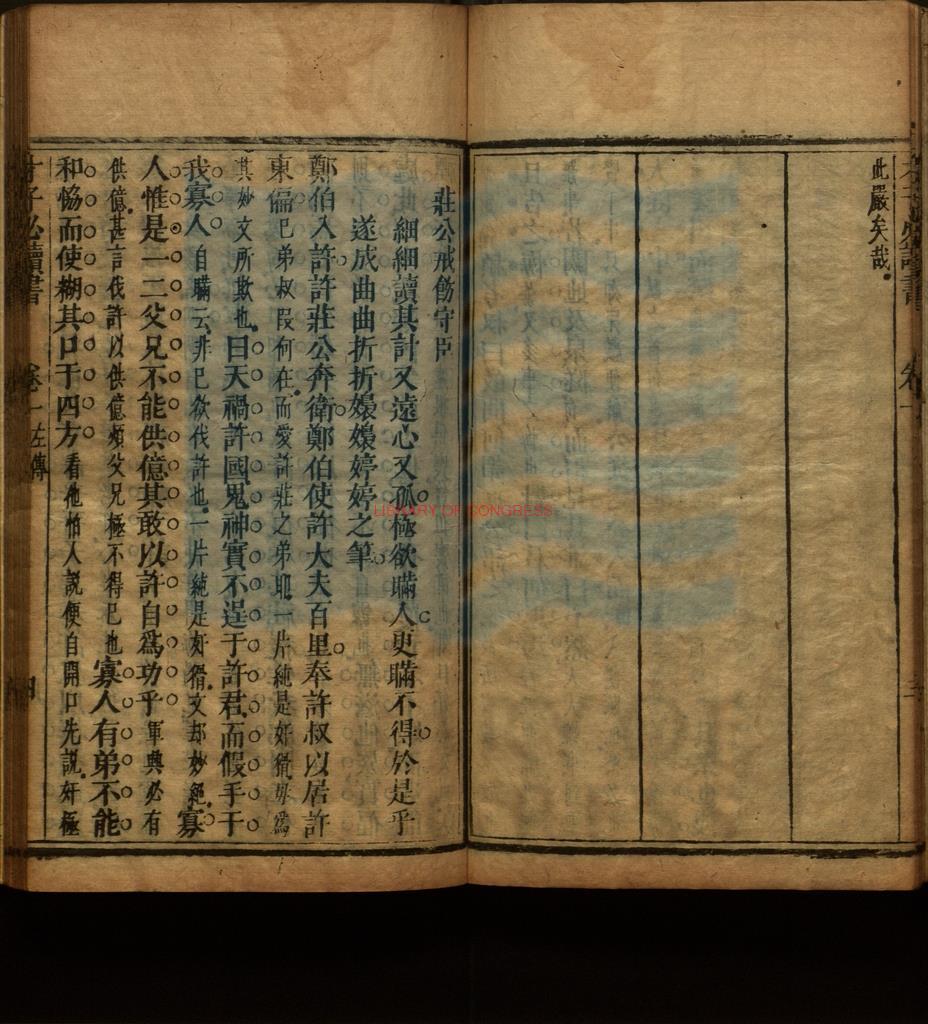 此嚴矣哉
莊公戒飭守臣
細細讀其計又遠心又孤極欲瞞人更瞞不得於是乎
遂成曲曲折折嬛嬛婷婷之筆
鄭伯入許許莊公奔衛鄭伯使許大夫百里奉許叔以居許
東偏已弟叔段何在而愛許莊之弟耶一片純是奸猾毋為
其妙文所欺也曰天禍許國鬼神實不逞于許君而假手于
我寡人自瞞云非已欲伐許也一片純是奸猾文却妙絕寡
人惟是一二父兄不能供億其敢以許自為功乎軍興必有
供億甚言伐許以供億煩父兄極不得已也寡人有弟不能
和恊而使糊其口于四方看他怕人說便自開口先說奸極
才子必讀書 卷一 左傳 四
LIBRARY OF CONGRESS